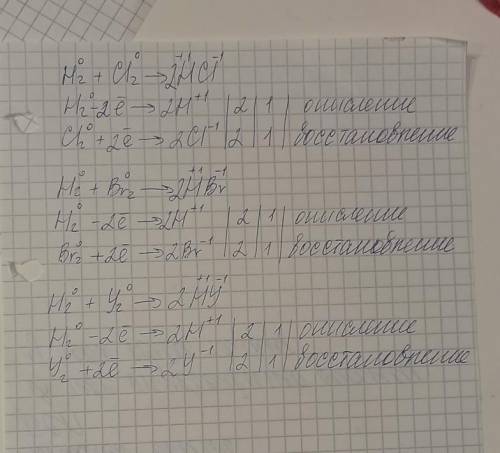 H₂⁰ + Cl₂⁰ → 2H⁺¹Cl⁻¹
H₂⁰ - 2ē → 2H⁺¹ | 2 | 1 | окисление
Cl₂⁰ + 2ē → 2Cl⁻¹ | 2 | 1 | восстановление
H₂⁰ + Br₂⁰ → 2H⁺¹Br⁻¹
H₂⁰ - 2ē → 2H⁺¹ | 2 | 1 | окисление
Br₂⁰ + 2ē → 2Br⁻¹ | 2 | 1 | восстановление
H₂⁰ + Y₂⁰ → 2H⁺¹Y⁻¹
H₂⁰ - 2ē → 2H⁺¹ | 2 | 1 | окисление
Y₂⁰ + 2ē → 2Y⁻¹ | 2 | 1 | восстановление